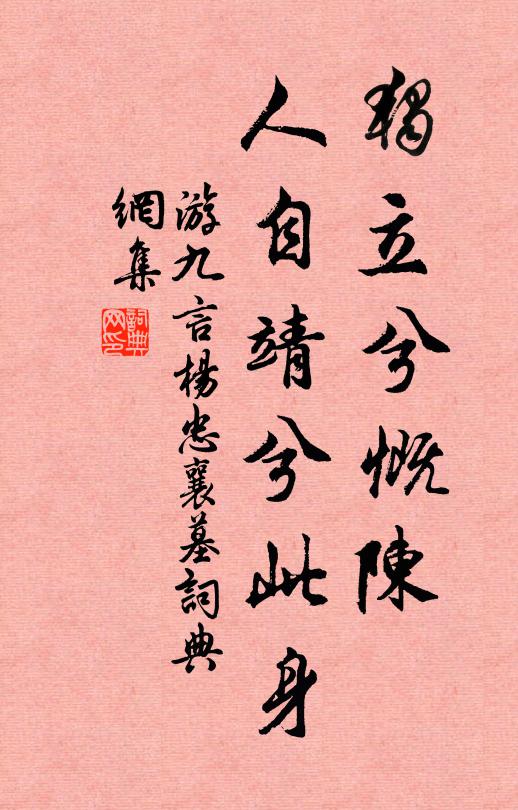 獨立兮慨陳
人自靖兮此身
游九言楊忠襄墓詞典
網集
詞典網印